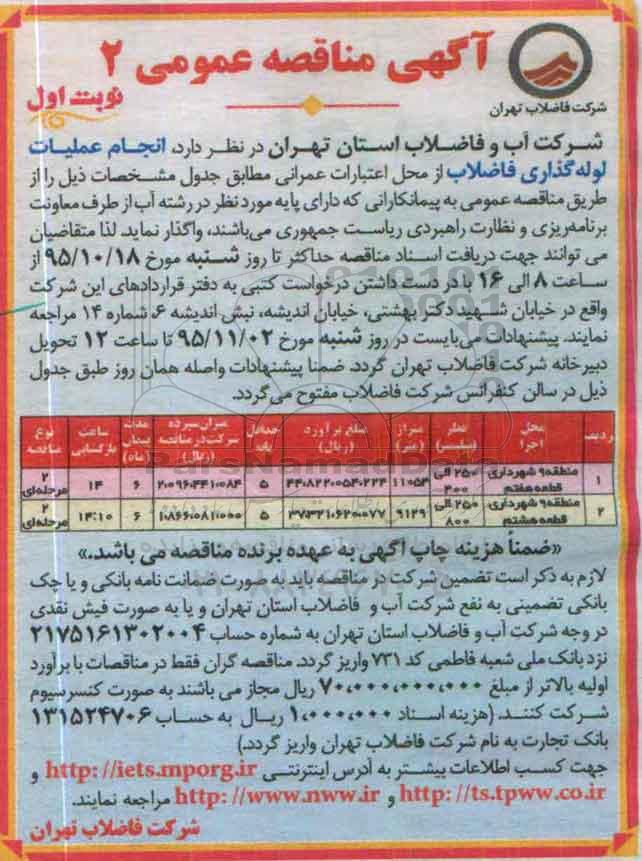 آگهی مناقصه عمومی ۲
نوبت اول
شرکت فاضلاب تهران
شرکت آب و فاضلاب استان تهران در نظر دارد، انجام عملیات
لوله گذاری فاضلاب از محل اعتبارات عمرانی مطابق جدول مشخصات ذیل را از
طریق مناقصه عمومی به پیمانکارانی که دارای پایه مورد نظر در رشته آب از طرف معاونت
برنامه‌ریزی و نظارت راهبردی ریاست جمهوری می‌باشند، واگذار نماید. لذا متقاضیان
می توانند جهت دریافت اسناد مناقصه حداکثر تا روز شنبه مورخ ۹۵/۱۰/۱۸ از
ساعت ۸ الی ۱۶ با در دست داشتن درخواست کتبی به دفتر قراردادهای این شرکت
واقع در خیابان شهید دکتر بهشتی، خیابان اندیشه، نبش اندیشه ۶، شماره ۱۴ مراجعه
نمایند. پیشنهادات می‌بایست در روز شنبه مورخ ۹۵/۱۱/۰۲ تا ساعت ۱۲ تحویل
دبیرخانه شرکت فاضلاب تهران گردد. ضمنا پیشنهادات واصله همان روز طبق جدول
ذیل در سالن کنفرانس شرکت فاضلاب مفتوح می‌گردد.
ردیف محل اجرا قطر (میلیمتر) متراژ (متر) مبلغ برآورد (ریال) حداقل پایه میزان سپرده شرکت در مناقصه (ریال) مدت پیمان (ماه) ساعت بازگشایی نوع مناقصه
۱ منطقه ۹ شهرداری قطعه هفتم ۲۵۰ الی ۳۰۰ ۱۱۰۵۳ ۵ ۶ ۱۴ ۲ مرحله‌ای
۲ منطقه ۹ شهرداری قطعه هشتم ۲۵۰ الی ۸۰۰ ۹۱۲۹ ۵ ۶ ۱۴:۱۰ ۲ مرحله‌ای
ParsNamadData
«ضمناً هزینه چاپ آگهی به عهده برنده مناقصه می باشد.»
لازم به ذکر است تضمین شرکت در مناقصه باید به صورت ضمانت نامه بانکی و یا چک
بانکی تضمینی به نفع شرکت آب و فاضلاب استان تهران و یا به صورت فیش نقدی
در وجه شرکت آب و فاضلاب استان تهران به شماره حساب ۲۱۷۵۱۶۱۳۰۲۰۰۴
نزد بانک ملی شعبه فاطمی کد ۷۳۱ واریز گردد. مناقصه گران فقط در مناقصات با برآورد
اولیه بالاتر از مبلغ ۷۰,۰۰۰,۰۰۰,۰۰۰ ریال مجاز می باشند به صورت کنسرسیوم
شرکت کنند. (هزینه اسناد ۱,۰۰۰,۰۰۰ ریال به حساب ۱۳۱۵۲۴۷۰۶
بانک تجارت به نام شرکت فاضلاب تهران واریز گردد.)
جهت کسب اطلاعات بیشتر به آدرس اینترنتی http://iets.mporg.ir و
http://ts.tpww.co.ir و http://www.nww.ir مراجعه نمایند.
شرکت فاضلاب تهران